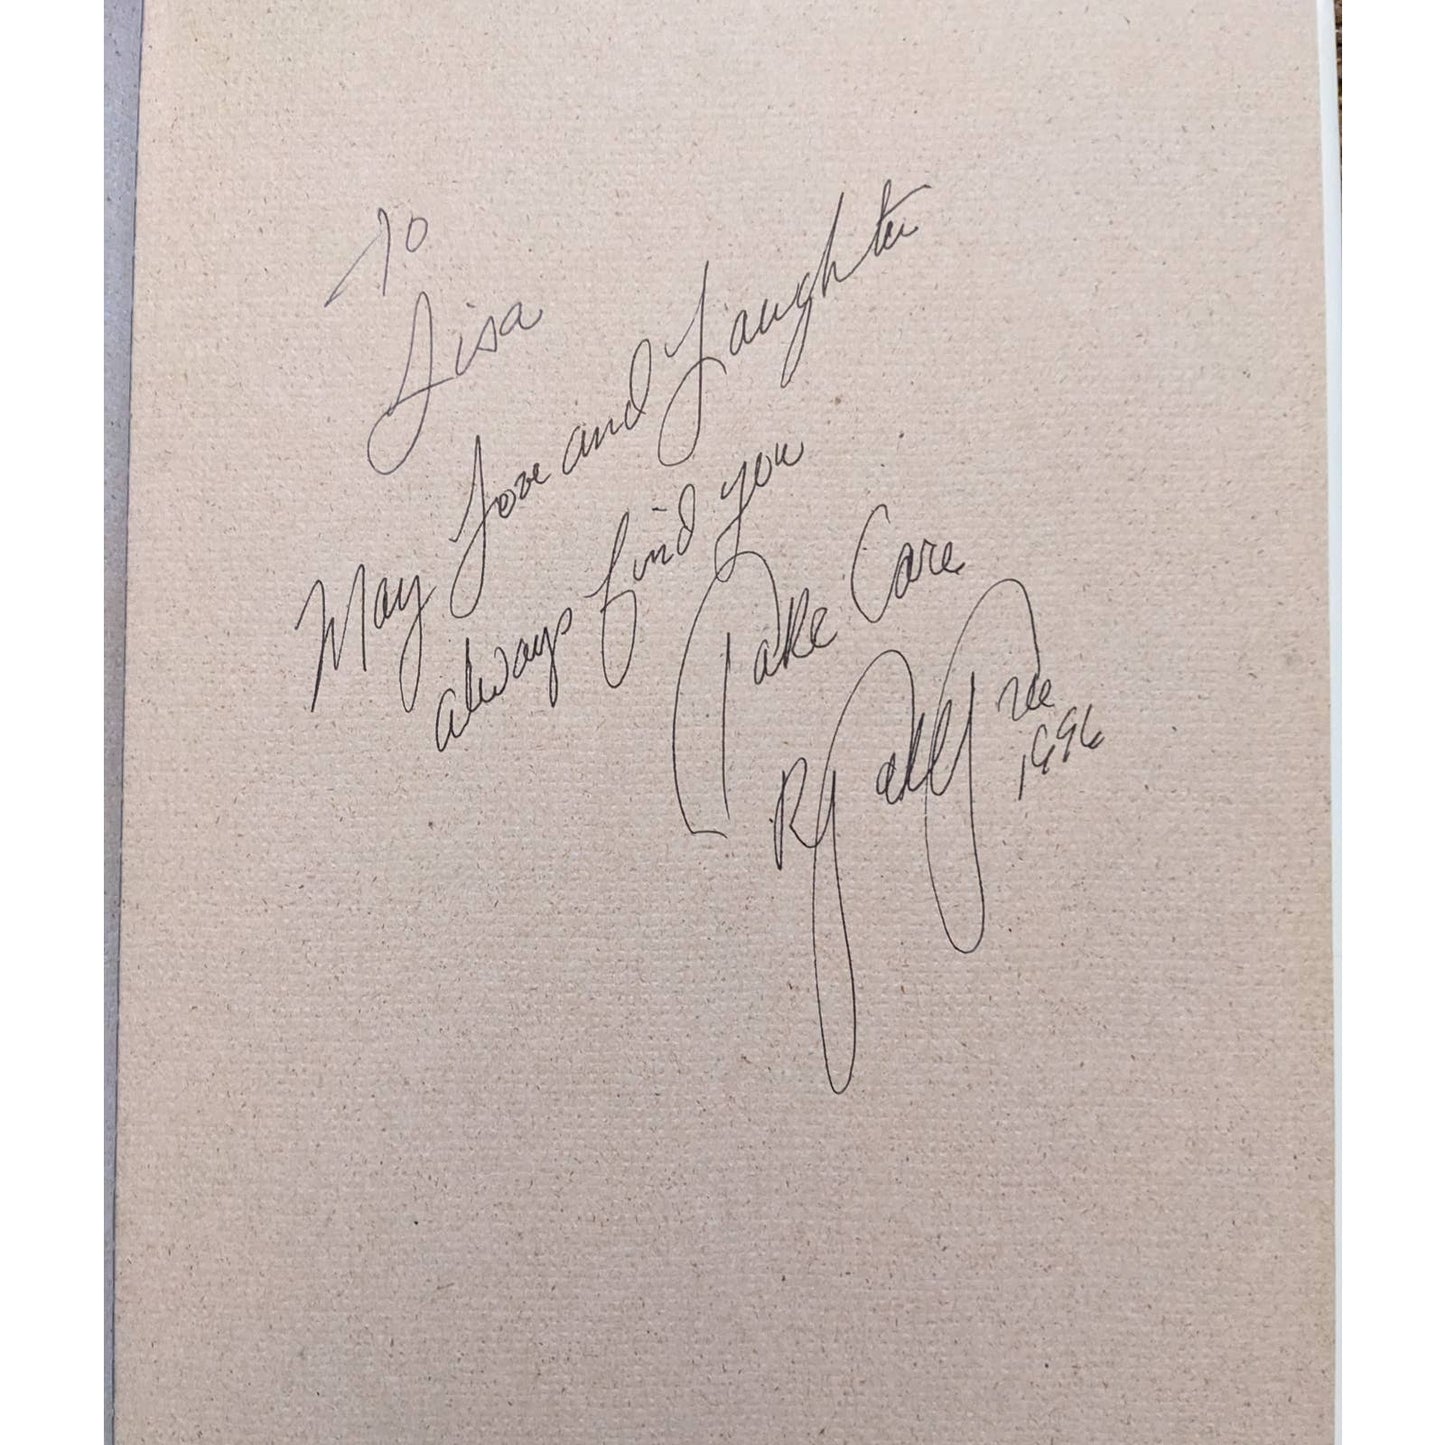 To
Lisa
May Love and Laughter
always find you
Take Care
1996